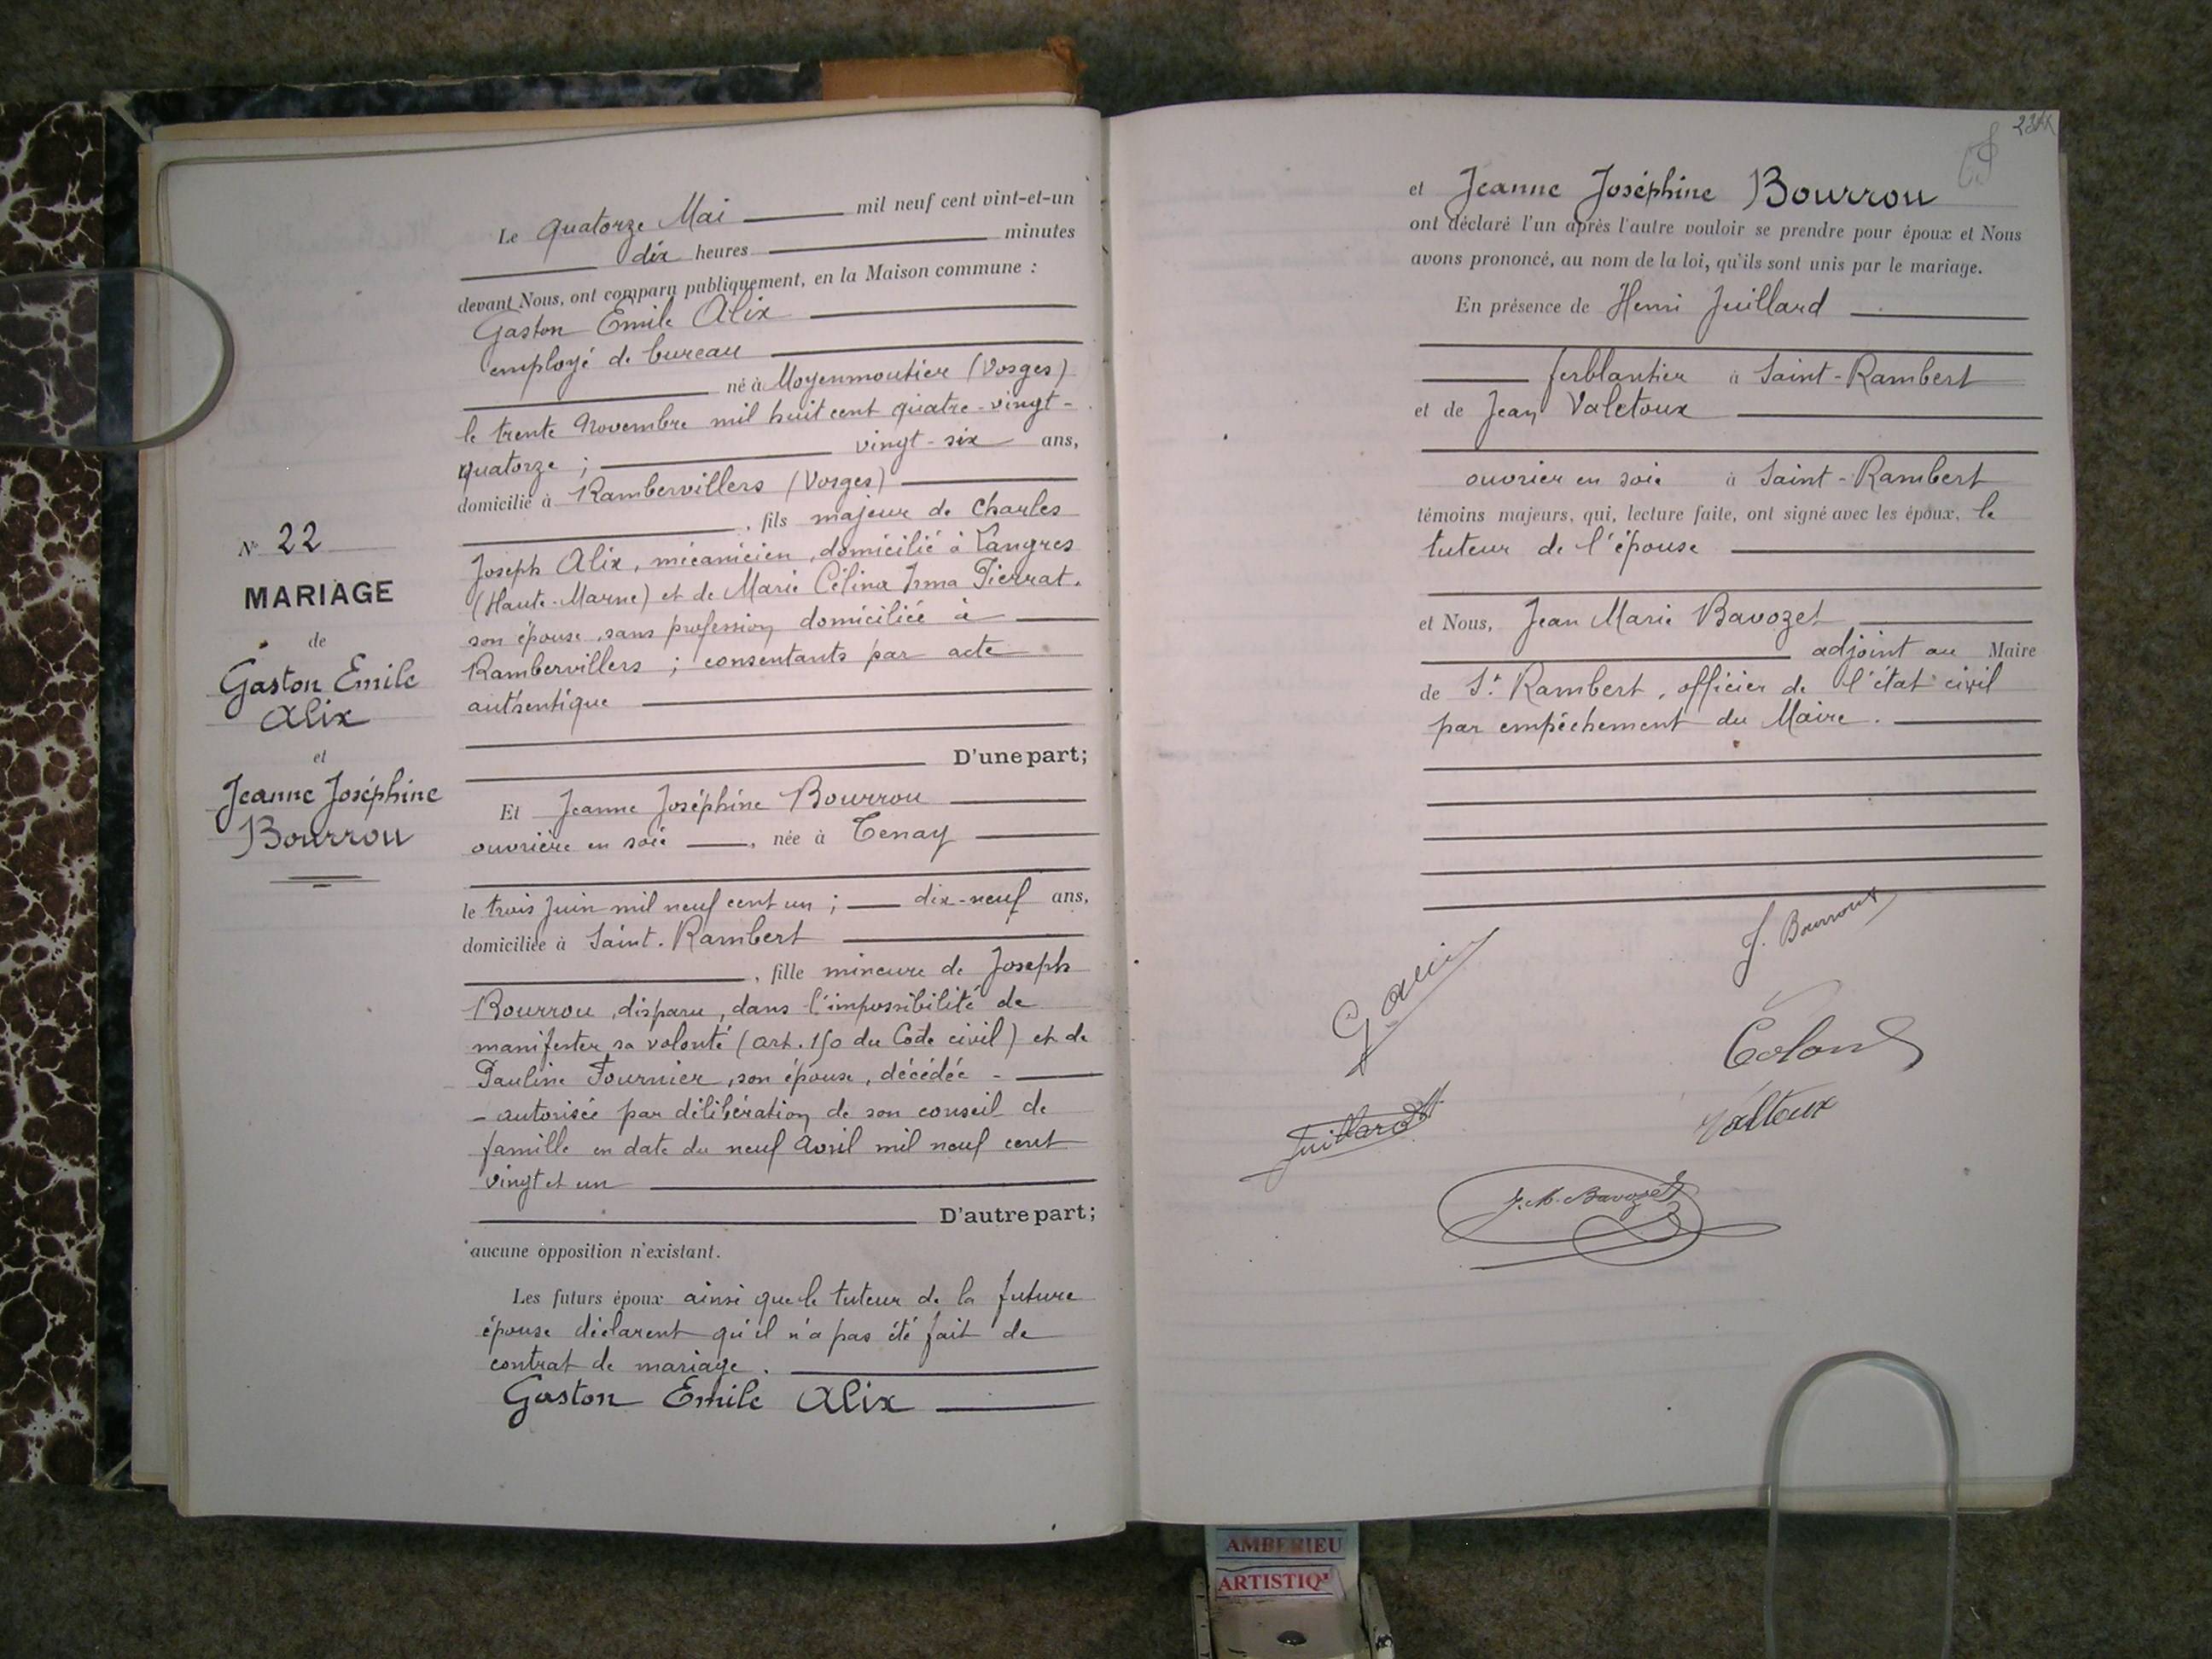 N° 22
MARIAGE
de
Gaston Emile
Alix
et
Jeanne Joséphine
Bourrou
Le quatorze Mai mil neuf cent vint-et-un
dix heures minutes
devant Nous, ont comparu publiquement, en la Maison commune :
Gaston Emile Alix
employé de bureau
né à Moyenmoutier (Vosges)
le trente Novembre mil huit cent quatre-vingt-
quatorze ; vingt-six ans,
domicilié à Rambervillers (Vosges)
, fils majeur de Charles
Joseph Alix, mécanicien, domicilié à Langres
(Haute-Marne) et de Marie Célina Irma Pierrat,
son épouse, sans profession, domiciliée à
Rambervillers ; consentants par acte
authentique
D'une part;
Et Jeanne Joséphine Bourrou
ouvrière en soie, née à Tenay
le trois juin mil neuf cent un ; dix-neuf ans,
domiciliée à Saint-Rambert
, fille mineure de Joseph
Bourrou, disparu, dans l'impossibilité de
manifester sa volonté (art. 150 du Code civil) et de
Pauline Fournier, son épouse, décédée -
- autorisée par délibération de son conseil de
famille en date du neuf avril mil neuf cent
vingt et un
D'autre part;
aucune opposition n'existant.
Les futurs époux ainsi que le tuteur de la future
épouse déclarent qu'il n'a pas été fait de
contrat de mariage.
Gaston Emile Alix
et Jeanne Joséphine Bourrou
ont déclaré l'un après l'autre vouloir se prendre pour époux et Nous
avons prononcé, au nom de la loi, qu'ils sont unis par le mariage.
En présence de Henri Juillard
ferblantier à Saint-Rambert
et de Jean Valetoux
ouvrier en soie à Saint-Rambert
témoins majeurs, qui, lecture faite, ont signé avec les époux, le
tuteur de l'épouse
et Nous, Jean Marie Bavozet
adjoint au Maire
de St Rambert, officier de l'état civil
par empêchement du Maire.
J. Bourroux
G. Alix
Colond
Juillard H
Valtoux
J. M. Bavozet
AMBERIEU
ARTISTIQ